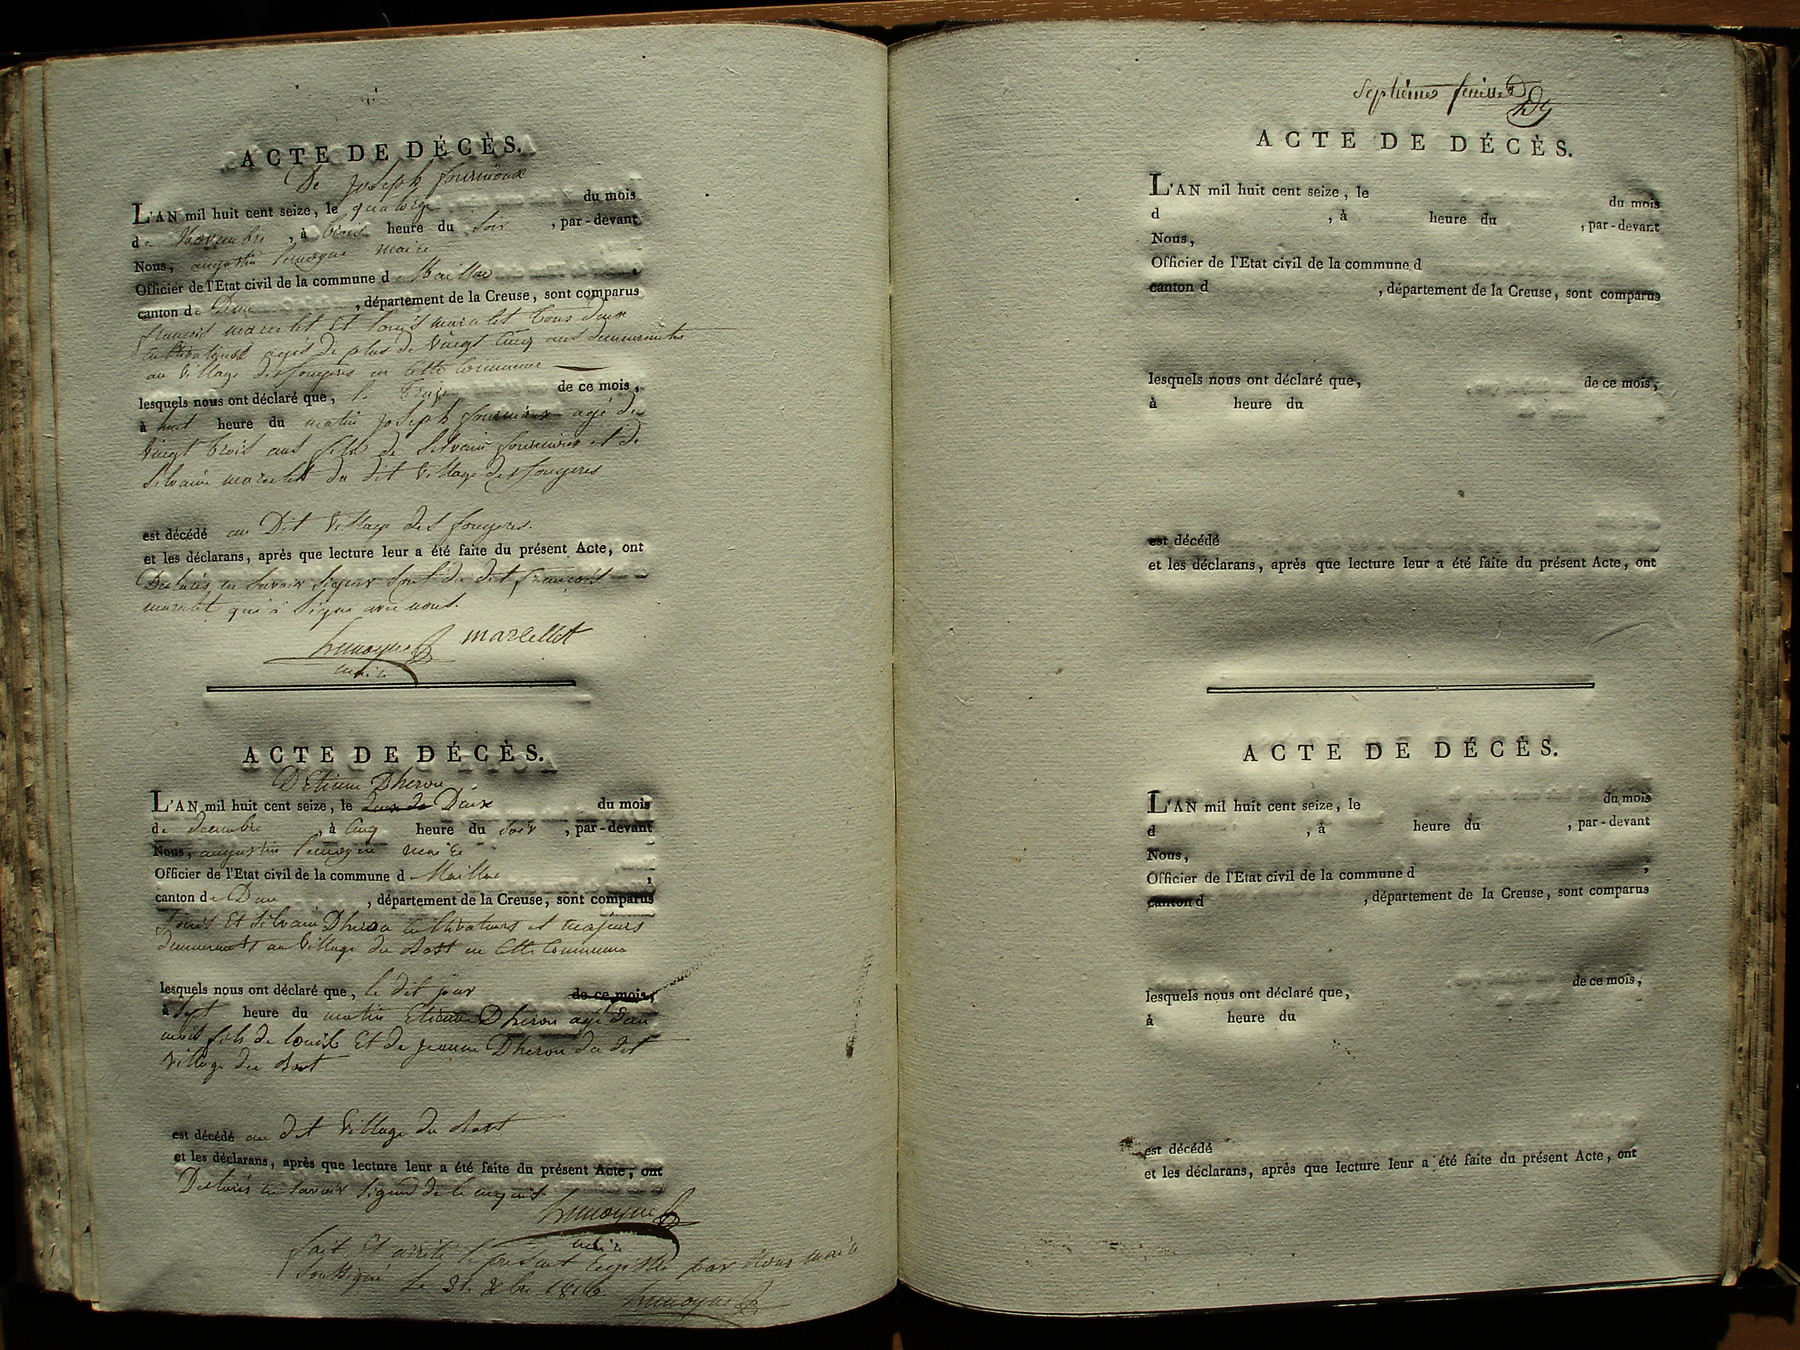 ACTE DE DÉCÈS.
De Joseph fournioux
L'AN mil huit cent seize, le quatorze du mois
de Novembre, à trois heure du soir, par-devant
Nous, augustin lemoyne maire
Officier de l'Etat civil de la commune de Maillac
canton de Dun, département de la Creuse, sont comparus
françois marcelet Et louis marcelet tous deux
cultivateurs agés de plus de vingt cinq ans demeurants
au village des fougeres en cette Commune
lesquels nous ont déclaré que, le treize de ce mois,
à huit heure du matin Joseph fournioux agé de
vingt trois ans fils de Silvain fournioux et de
Silvaine marcelet du dit village des fougeres
est décédé au Dit village des fougeres.
et les déclarans, après que lecture leur a été faite du présent Acte, ont
Declarés ne savoir signer sauf le dit françois
marcelet qui a signé avec nous.
Lemoyne marcellet
maire
ACTE DE DÉCÈS.
D'Etienne Dheron
L'AN mil huit cent seize, le Deux du mois
de decembre, à cinq heure du soir, par-devant
Nous, augustin lemoyne maire
Officier de l'Etat civil de la commune d Maillac,
canton de Dun, département de la Creuse, sont comparus
Louis Et Silvain Dheron cultivateurs et majeurs
demeurants au village du Bost en cette Commune
lesquels nous ont déclaré que, le dit jour de ce mois,
à sept heure du matin Etienne Dheron agé d'un
mois fils de louis Et de jeanne Dheron du dit
village du Bost
est décédé au dit village du Bost
et les déclarans, après que lecture leur a été faite du présent Acte, ont
Declarés ne savoir signer de ce enquis.
Lemoyne
maire
fait Et arrêté le présent registre par Nous maire
soussigné le 31. Xbre 1816 Lemoyne
Septième feuillet
ACTE DE DÉCÈS.
L'AN mil huit cent seize, le du mois
d , à heure du , par-devant
Nous,
Officier de l'Etat civil de la commune d
canton d , département de la Creuse, sont comparus
lesquels nous ont déclaré que, de ce mois,
à heure du
est décédé
et les déclarans, après que lecture leur a été faite du présent Acte, ont
ACTE DE DÉCÈS.
L'AN mil huit cent seize, le du mois
d , à heure du , par-devant
Nous,
Officier de l'Etat civil de la commune d ,
canton d , département de la Creuse, sont comparus
lesquels nous ont déclaré que, de ce mois,
à heure du
est décédé
et les déclarans, après que lecture leur a été faite du présent Acte, ont